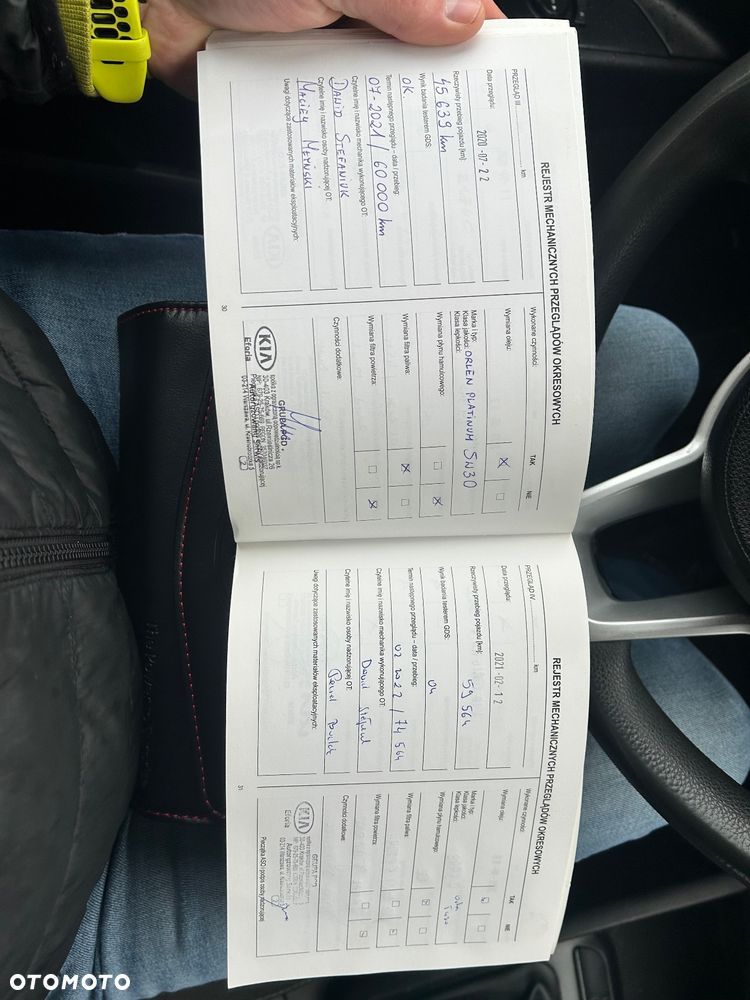 REJESTR MECHANICZNYCH PRZEGLĄDÓW OKRESOWYCH
PRZEGLĄD III ........................ km
Data przeglądu:
2020-07-22
Rzeczywisty przebieg pojazdu [km]:
45 639 km
Wynik badania testerem GDS:
OK
Termin następnego przeglądu – data / przebieg:
07-2021 / 60 000 km
Czytelne imię i nazwisko mechanika wykonującego OT:
DAWID STEFANIUK
Czytelne imię i nazwisko osoby nadzorującej OT:
MACIEJ MŁYŃSKI
Uwagi dotyczące zastosowanych materiałów eksploatacyjnych:
30
Wykonane czynności: TAK NIE
Wymiana oleju:
Marka i typ: ORLEN PLATINUM 5W30
Klasa jakości:
Klasa lepkości:
Wymiana płynu hamulcowego:
Wymiana filtra paliwa:
Wymiana filtra powietrza:
Czynności dodatkowe:
KIA
Eforia
GRUPA PGD
30-403 Kraków
2
REJESTR MECHANICZNYCH PRZEGLĄDÓW OKRESOWYCH
PRZEGLĄD IV ........................ km
Data przeglądu:
2021-02-12
Rzeczywisty przebieg pojazdu [km]:
59 564
Wynik badania testerem GDS:
Termin następnego przeglądu – data / przebieg:
02 2022 / 74 564
Czytelne imię i nazwisko mechanika wykonującego OT:
Czytelne imię i nazwisko osoby nadzorującej OT:
Uwagi dotyczące zastosowanych materiałów eksploatacyjnych:
31
Wykonane czynności: TAK NIE
Wymiana oleju:
Marka i typ:
Klasa jakości:
Klasa lepkości:
Wymiana płynu hamulcowego:
Wymiana filtra paliwa:
Wymiana filtra powietrza:
Czynności dodatkowe:
KIA
Eforia
GRUPA PGD
Pieczątka ASO i podpis osoby nadzorującej
OTOMOTO